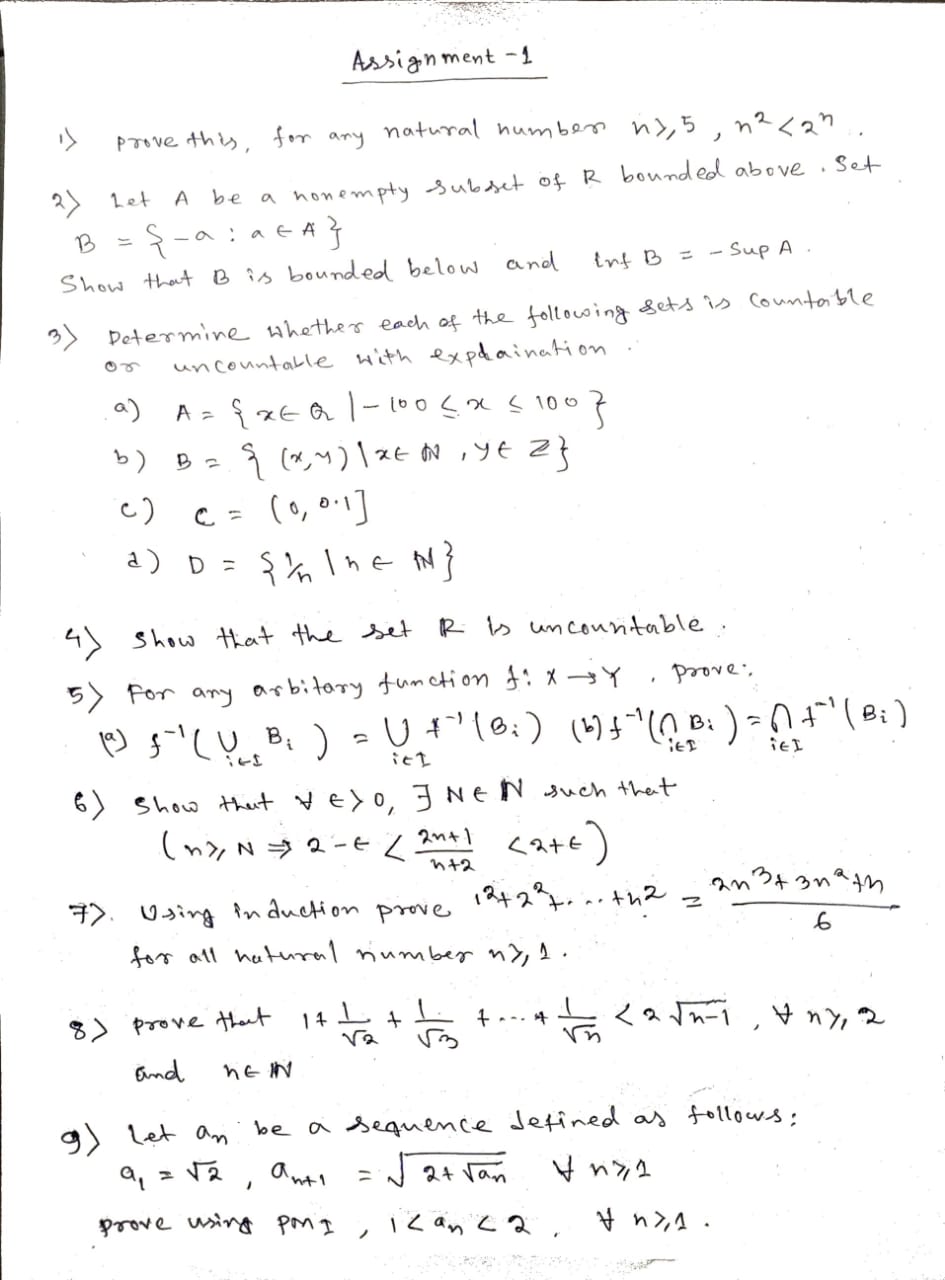 Assignment -1
1) prove this, for any natural number n≥5, n² < 2ⁿ.
2) Let A be a nonempty subset of R bounded above. Set
B = {-a : a ∈ A}
Show that B is bounded below and Inf B = - Sup A.
3) Determine whether each of the following sets is Countable
or uncountable with explaination.
a) A = {x ∈ Q | -100 ≤ x ≤ 100}
b) B = {(x,y) | x ∈ N, y ∈ Z}
c) C = (0, 0.1]
d) D = {1/n | n ∈ N}
4) Show that the set R is uncountable.
5) For any arbitary function f: X → Y, prove:
(a) f⁻¹(∪_{i∈I} B_i) = ∪_{i∈I} f⁻¹(B_i) (b) f⁻¹(∩_{i∈I} B_i) = ∩_{i∈I} f⁻¹(B_i)
6) Show that ∀ ε>0, ∃ N ∈ N such that
(n≥N ⇒ 2-ε < (2n+1)/(n+2) < 2+ε)
7). Using induction prove 1²+2²+...+n² = (2n³+3n²+n)/6
for all natural number n≥1.
8) prove that 1+1/√2+1/√3+...+1/√n < 2√(n-1), ∀ n≥2
and n ∈ N
9) Let an be a sequence defined as follows:
a₁ = √2, a_{n+1} = √(2+√an) ∀ n≥1
prove using PMI, 1<an<2, ∀ n≥1.